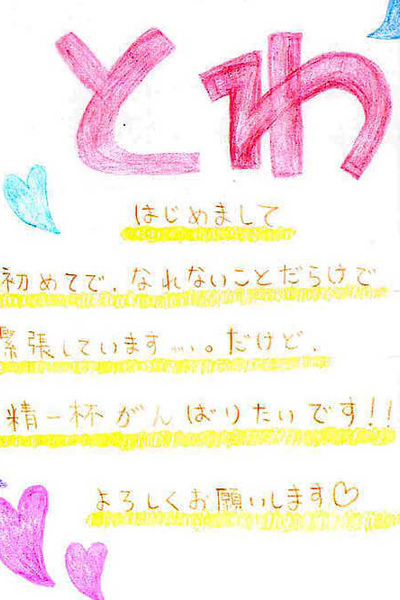 とわ
はじめまして
初めてで、なれないことだらけで
緊張しています…。だけど、
精一杯がんばりたいです!!
よろしくお願いします♡